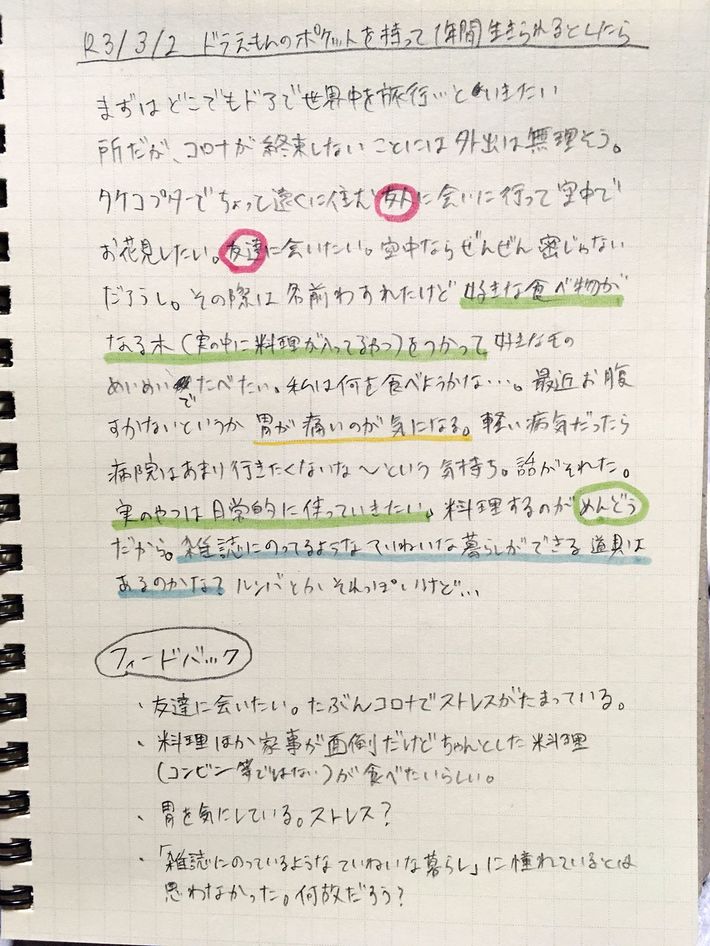 R3/3/2 ドラえもんのポケットを持って1年間生きられるとしたら
まずはどこでもドアで世界中を旅行…といきたい
所だが、コロナが終束しないことには外出は無理そう。
タケコプターでちょって遠くに住む友人に会いに行って空中で
お花見したい。友達に会いたい。空中ならぜんぜん密じゃない
だろうし。その際は名前わすれたけど好きな食べ物が
なる木(実の中に料理が入ってるやつ)をつかって好きなもの
めいめいでたべたい。私は何を食べようかな…。最近お腹
すかないというか胃が痛いのが気になる。軽い病気だったら
病院はあまり行きたくないな〜という気持ち。話がそれた。
実のやつは日常的に使っていきたい。料理するのがめんどう
だから。雑誌にのってるようなていねいな暮らしができる道具は
あるのかな?ルンバとかそれっぽいけど…
フィードバック
・友達に会いたい。たぶんコロナでストレスがたまっている。
・料理ほか家事が面倒だけどちゃんとした料理
(コンビニ等ではない)が食べたいらしい。
・胃を気にしている。ストレス?
・「雑誌にのっているようなていねいな暮らし」に憧れているとは
思わなかった。何故だろう?